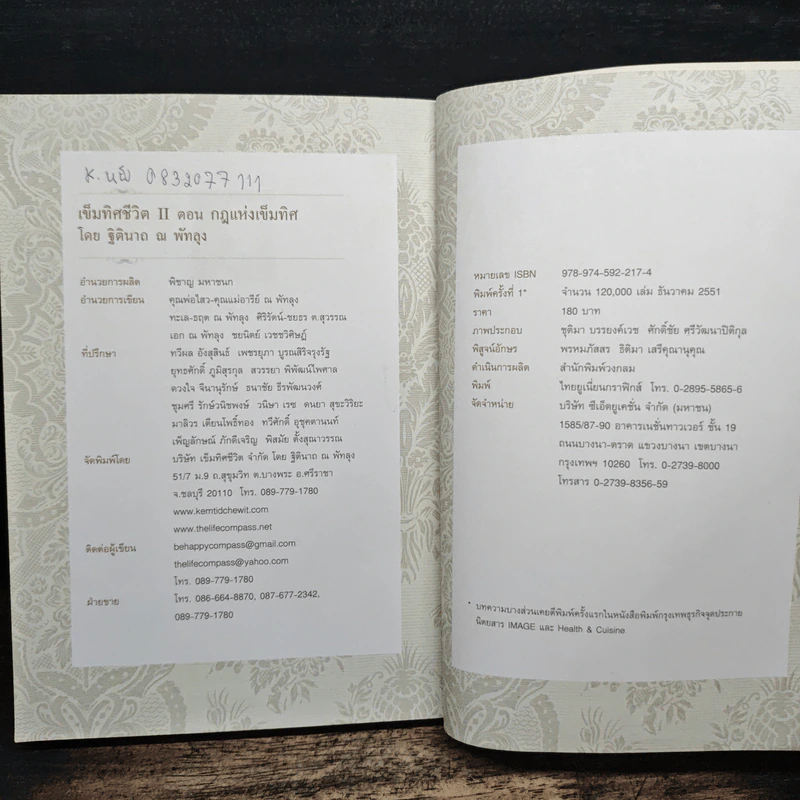 K. หน่ง 0832077111
เข็มทิศชีวิต II ตอน กฎแห่งเข็มทิศ
โดย ฐิตินาถ ณ พัทลุง
อำนวยการผลิต พิชาญ มหาชนก
อำนวยการเขียน คุณพ่อไสว-คุณแม่อารีย์ ณ พัทลุง
ทะเล-ธฤต ณ พัทลุง ศิริรัตน์-ชยธร ต.สุวรรณ
เอก ณ พัทลุง ชยนิตย์ เวชชวิศิษฏ์
ที่ปรึกษา ทวีผล อังสุสินธ์ เพชรยุภา บูรณสิริจรุงรัฐ
ยุทธศักดิ์ ภูมิสุรกุล สวรรยา พิพัฒน์ไพศาล
ดวงใจ จีนานุรักษ์ ธนาชัย ธีรพัฒนวงศ์
ชุมศรี รักษ์วนิชพงษ์ วนิษา เรซ ดนยา สุขะวิริยะ
มาลิวร เตียนโพธิ์ทอง ทวีศักดิ์ อุชุคตานนท์
เพ็ญลักษณ์ ภักดีเจริญ พิสมัย ตั้งสุณาวรรณ
จัดพิมพ์โดย บริษัท เข็มทิศชีวิต จำกัด โดย ฐิตินาถ ณ พัทลุง
51/7 ม.9 ถ.สุขุมวิท ต.บางพระ อ.ศรีราชา
จ.ชลบุรี 20110 โทร. 089-779-1780
www.kemtidchewit.com
www.thelifecompass.net
ติดต่อผู้เขียน behappycompass@gmail.com
thelifecompass@yahoo.com
โทร. 089-779-1780
ฝ่ายขาย โทร. 086-664-8870, 087-677-2342,
089-779-1780
หมายเลข ISBN 978-974-592-217-4
พิมพ์ครั้งที่ 1* จำนวน 120,000 เล่ม ธันวาคม 2551
ราคา 180 บาท
ภาพประกอบ ชุติมา บรรยงค์เวช ศักดิ์ชัย ศรีวัฒนาปิติกุล
พิสูจน์อักษร พรหมภัสสร ธิติมา เสรีคุณานุคุณ
ดำเนินการผลิต สำนักพิมพ์วงกลม
พิมพ์ ไทยยูเนี่ยนกราฟิกส์ โทร. 0-2895-5865-6
จัดจำหน่าย บริษัท ซีเอ็ดยูเคชั่น จำกัด (มหาชน)
1585/87-90 อาคารเนชั่นทาวเวอร์ ชั้น 19
ถนนบางนา-ตราด แขวงบางนา เขตบางนา
กรุงเทพฯ 10260 โทร. 0-2739-8000
โทรสาร 0-2739-8356-59
* บทความบางส่วนเคยตีพิมพ์ครั้งแรกในหนังสือพิมพ์กรุงเทพธุรกิจจุดประกาย
นิตยสาร IMAGE และ Health & Cuisine